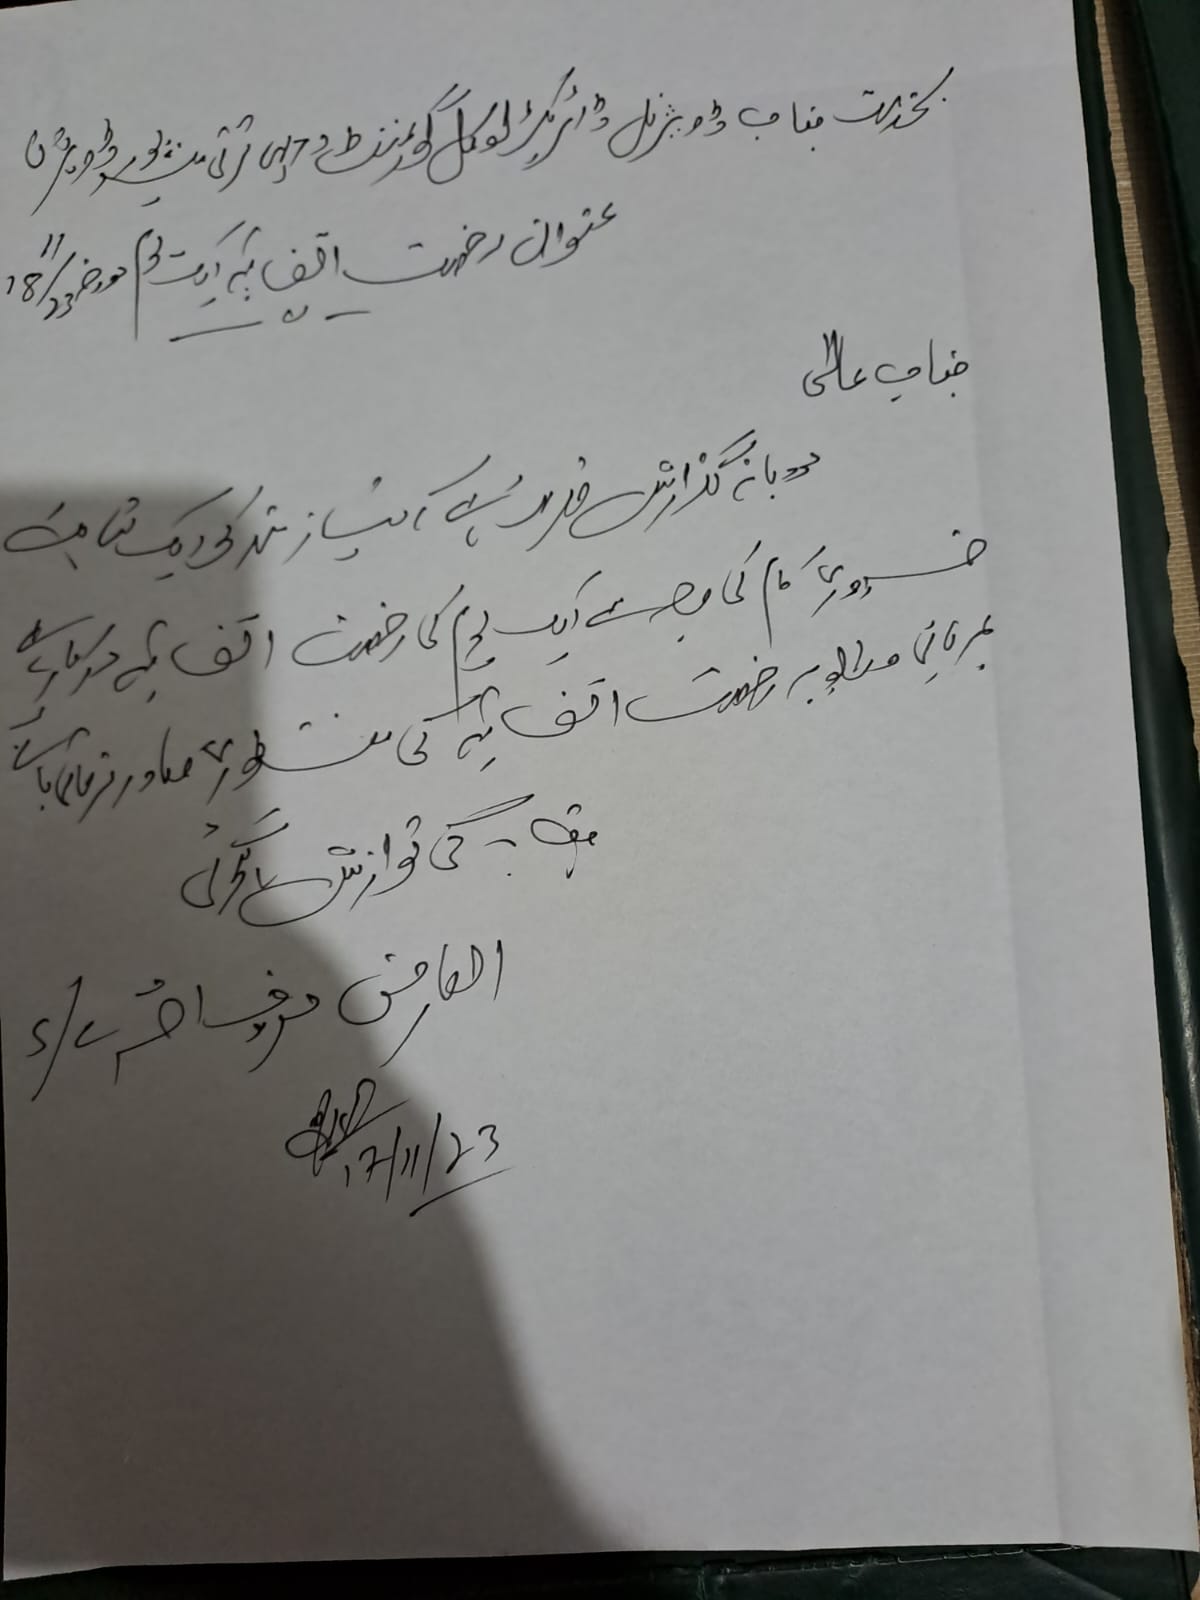 بخدمت جناب ڈویژنل ڈائریکٹر لوکل گورنمنٹ و دیہی ترقی میرپور ڈویژن
عنوان رخصت اتفاقیہ ایک یوم مورخہ 18/11/23
جناب عالی
مودبانہ گزارش خدمت ہے کہ نیاز مند کی ایک
ضروری کام کی وجہ سے ایک یوم کی رخصت اتفاقیہ درکار ہے
مہربانی مطلوبہ رخصت اتفاقیہ کی منظوری صادر فرمائی جائے
گی نوازش
العارض احمد
17/11/23